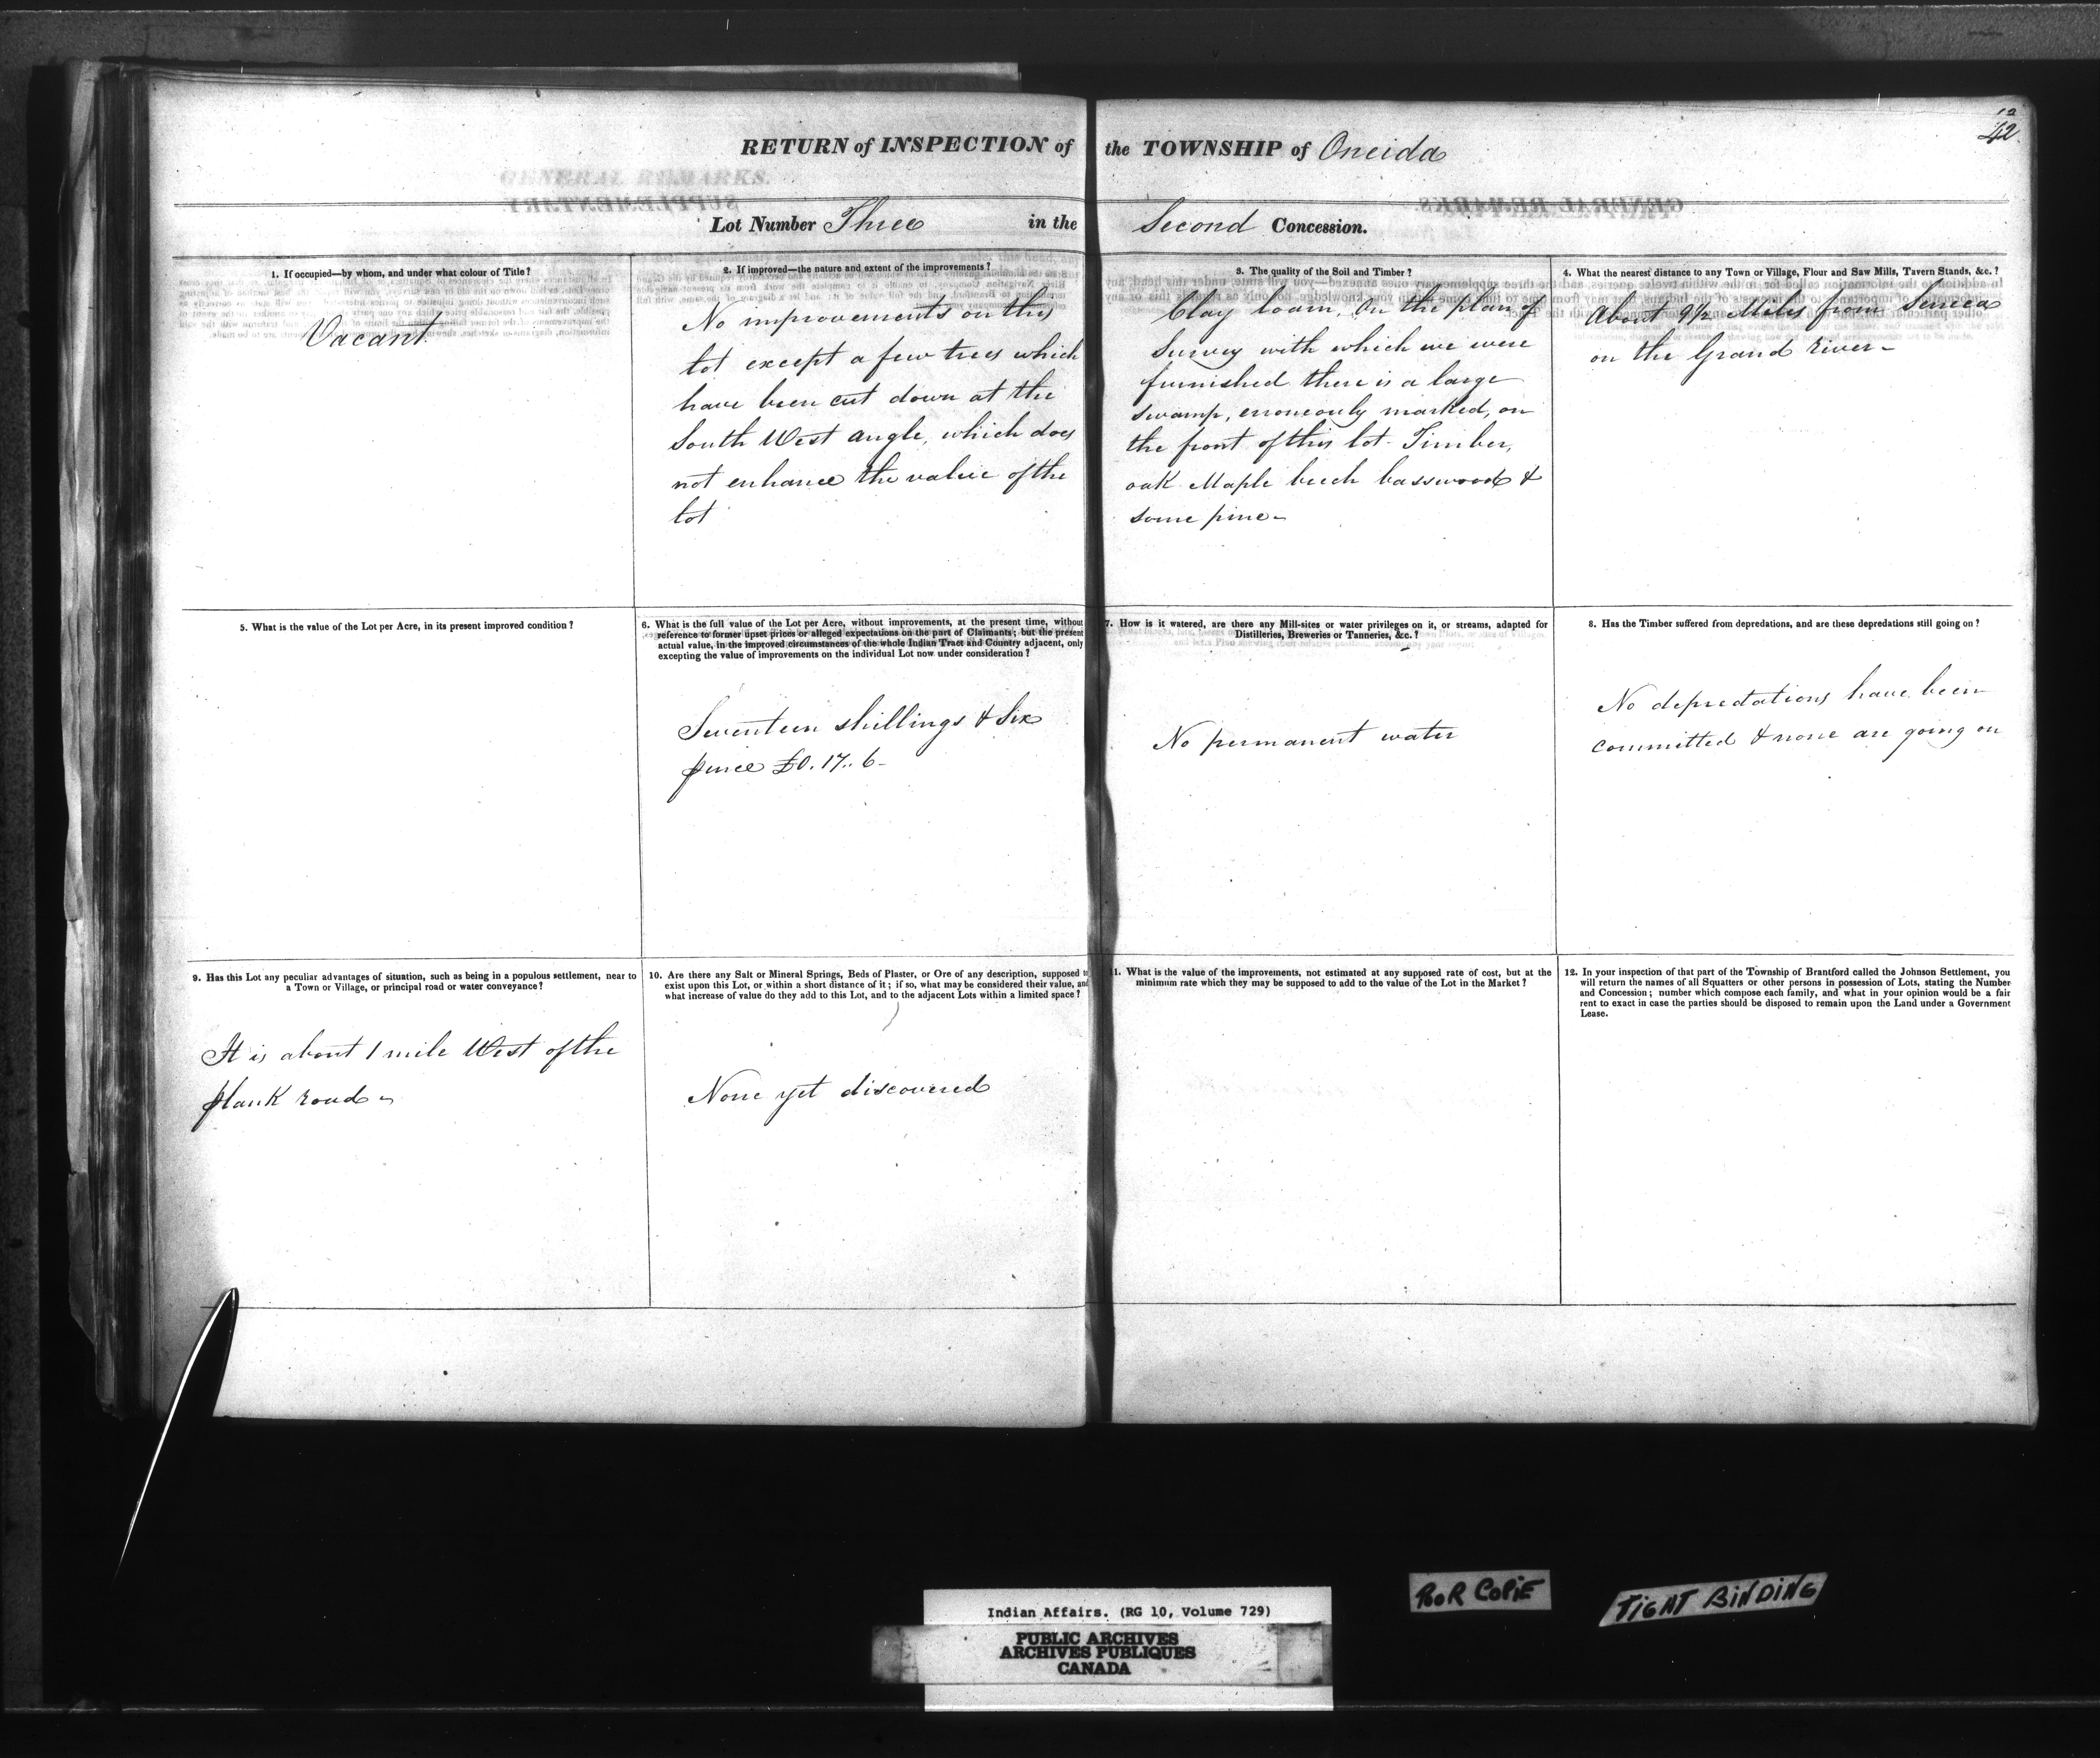 12
42.
RETURN of INSPECTION of the TOWNSHIP of Oneida
Lot Number Three in the Second Concession.
1. If occupied—by whom, and under what colour of Title?
Vacant
2. If improved—the nature and extent of the improvements?
No improvements on this
lot except a few trees which
have been cut down at the
South West angle, which does
not enhance the value of the
lot
3. The quality of the Soil and Timber?
Clay loam, On the plan of
Survey with which we were
furnished there is a large
swamp, erroneously marked, on
the front of this lot- Timber,
oak Maple beech basswood &
some pine-
4. What the nearest distance to any Town or Village, Flour and Saw Mills, Tavern Stands, &c.?
About 9½ Miles from Seneca
on the Grand river-
5. What is the value of the Lot per Acre, in its present improved condition?
6. What is the full value of the Lot per Acre, without improvements, at the present time, without
reference to former upset prices or alleged expectations on the part of Claimants; but the present
actual value, in the improved circumstances of the whole Indian Tract and Country adjacent, only
excepting the value of improvements on the individual Lot now under consideration?
Seventeen shillings & Six
pence £0. 17.. 6-
7. How is it watered, are there any Mill-sites or water privileges on it, or streams, adapted for
Distilleries, Breweries or Tanneries, &c.?
No permanent water
8. Has the Timber suffered from depredations, and are these depredations still going on?
No depredations have been
committed & none are going on
9. Has this Lot any peculiar advantages of situation, such as being in a populous settlement, near to
a Town or Village, or principal road or water conveyance?
It is about 1 mile West of the
plank road-
10. Are there any Salt or Mineral Springs, Beds of Plaster, or Ore of any description, supposed to
exist upon this Lot, or within a short distance of it; if so, what may be considered their value, and
what increase of value do they add to this Lot, and to the adjacent Lots within a limited space?
None yet discovered
11. What is the value of the improvements, not estimated at any supposed rate of cost, but at the
minimum rate which they may be supposed to add to the value of the Lot in the Market?
12. In your inspection of that part of the Township of Brantford called the Johnson Settlement, you
will return the names of all Squatters or other persons in possession of Lots, stating the Number
and Concession; number which compose each family, and what in your opinion would be a fair
rent to exact in case the parties should be disposed to remain upon the Land under a Government
Lease.
POOR COPIE
TIGHT BINDING
Indian Affairs. (RG 10, Volume 729)
PUBLIC ARCHIVES
ARCHIVES PUBLIQUES
CANADA